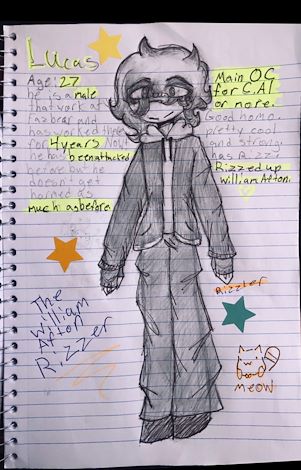 Lucas
Age: 27
he is a male
that work at
fazbear and
has worked there
for 4 years now!
he has been attacked
before but he
doesn't get
harmed as
much as before.
Main OC
for C.AI
or more.
Good home,
pretty cool
and strong,
has Rizz.
Rizzed up
William Afton.
The
William
Afton
Rizzer
Rizzler
meow